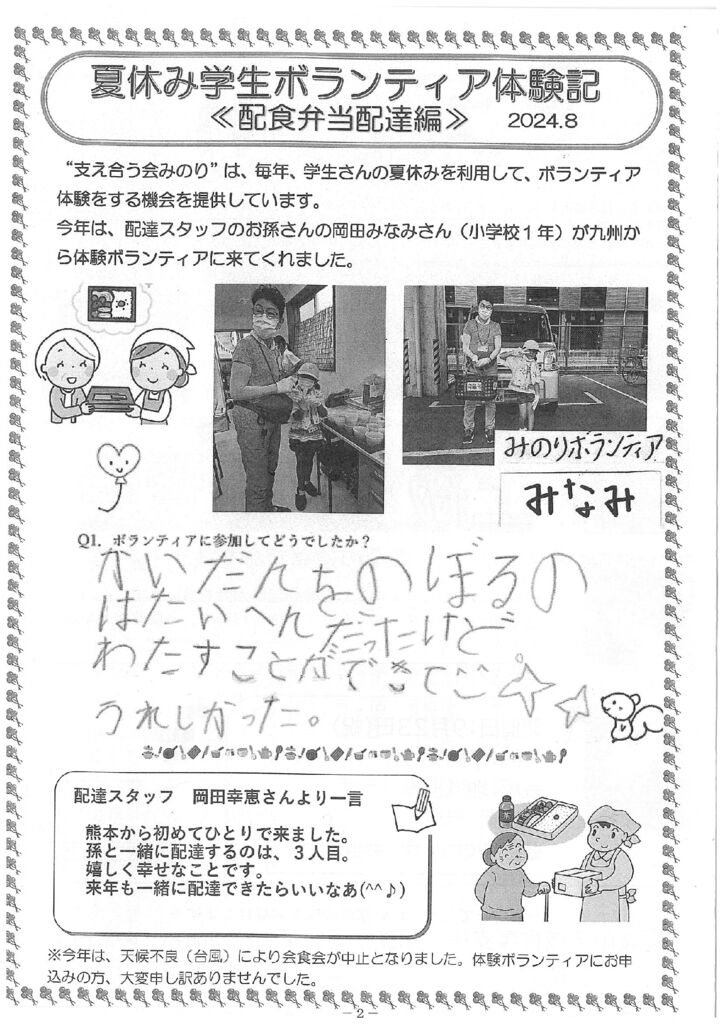 夏休み学生ボランティア体験記
≪配食弁当配達編≫ 2024.8
“支え合う会みのり”は、毎年、学生さんの夏休みを利用して、ボランティア
体験をする機会を提供しています。
今年は、配達スタッフのお孫さんの岡田みなみさん（小学校１年）が九州か
ら体験ボランティアに来てくれました。
みのりボランティア
みなみ
Q1. ボランティアに参加してどうでしたか？
かいだんをのぼるの
はたいへんだったけど
わたすことができて
うれしかった。
配達スタッフ　岡田幸恵さんより一言
熊本から初めてひとりで来ました。
孫と一緒に配達するのは、３人目。
嬉しく幸せなことです。
来年も一緒に配達できたらいいなあ(^^♪)
※今年は、天候不良（台風）により会食会が中止となりました。体験ボランティアにお申
込みの方、大変申し訳ありませんでした。
－2－